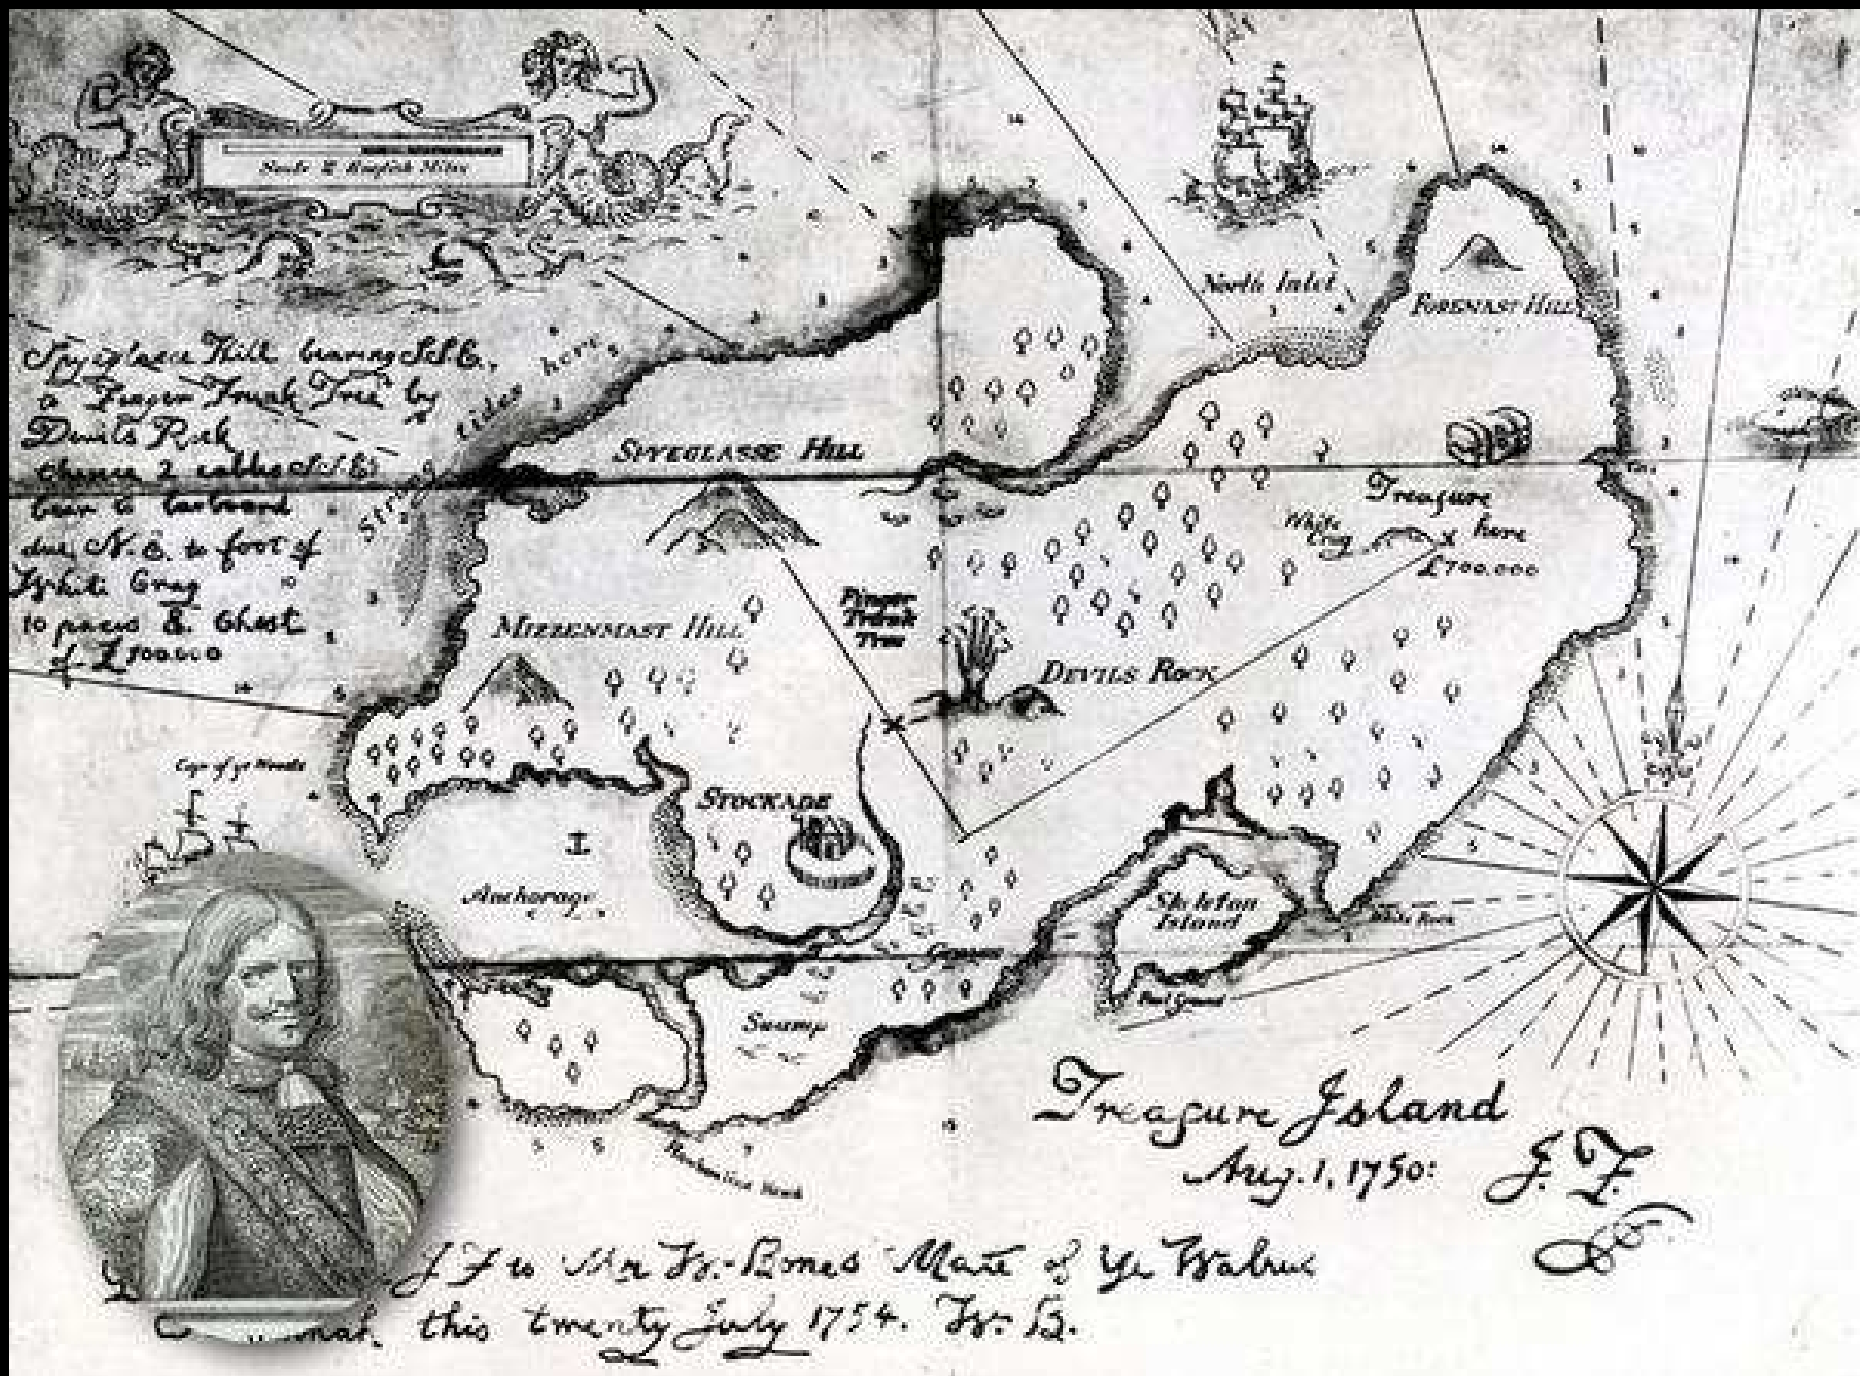 English Miles
North Inlet
FOREMAST HILL
Spyglasse Hill bearing S.S.E.,
a Finger Trunk Tree by
Devils Rock
thence 2 cables S.S.E.
bear to larboard
due N.E. to foot of
White Crag
10 paces E. Chest
of £700.000
Strong tides here
SPYEGLASSE HILL
Treasure
here
£700.000
White
Crag
MIZZENMAST HILL
Finger
Trunk
Tree
DEVILS ROCK
Cape of ye Woods
STOCKADE
Anchorage
Skeleton
Island
White Rock
Foul Ground
Swamp
Treasure Island
Aug. 1, 1750:
J. F.
J F to Mr W. Bones Mate of Ye Walrus
this twenty July 1754. W. B.